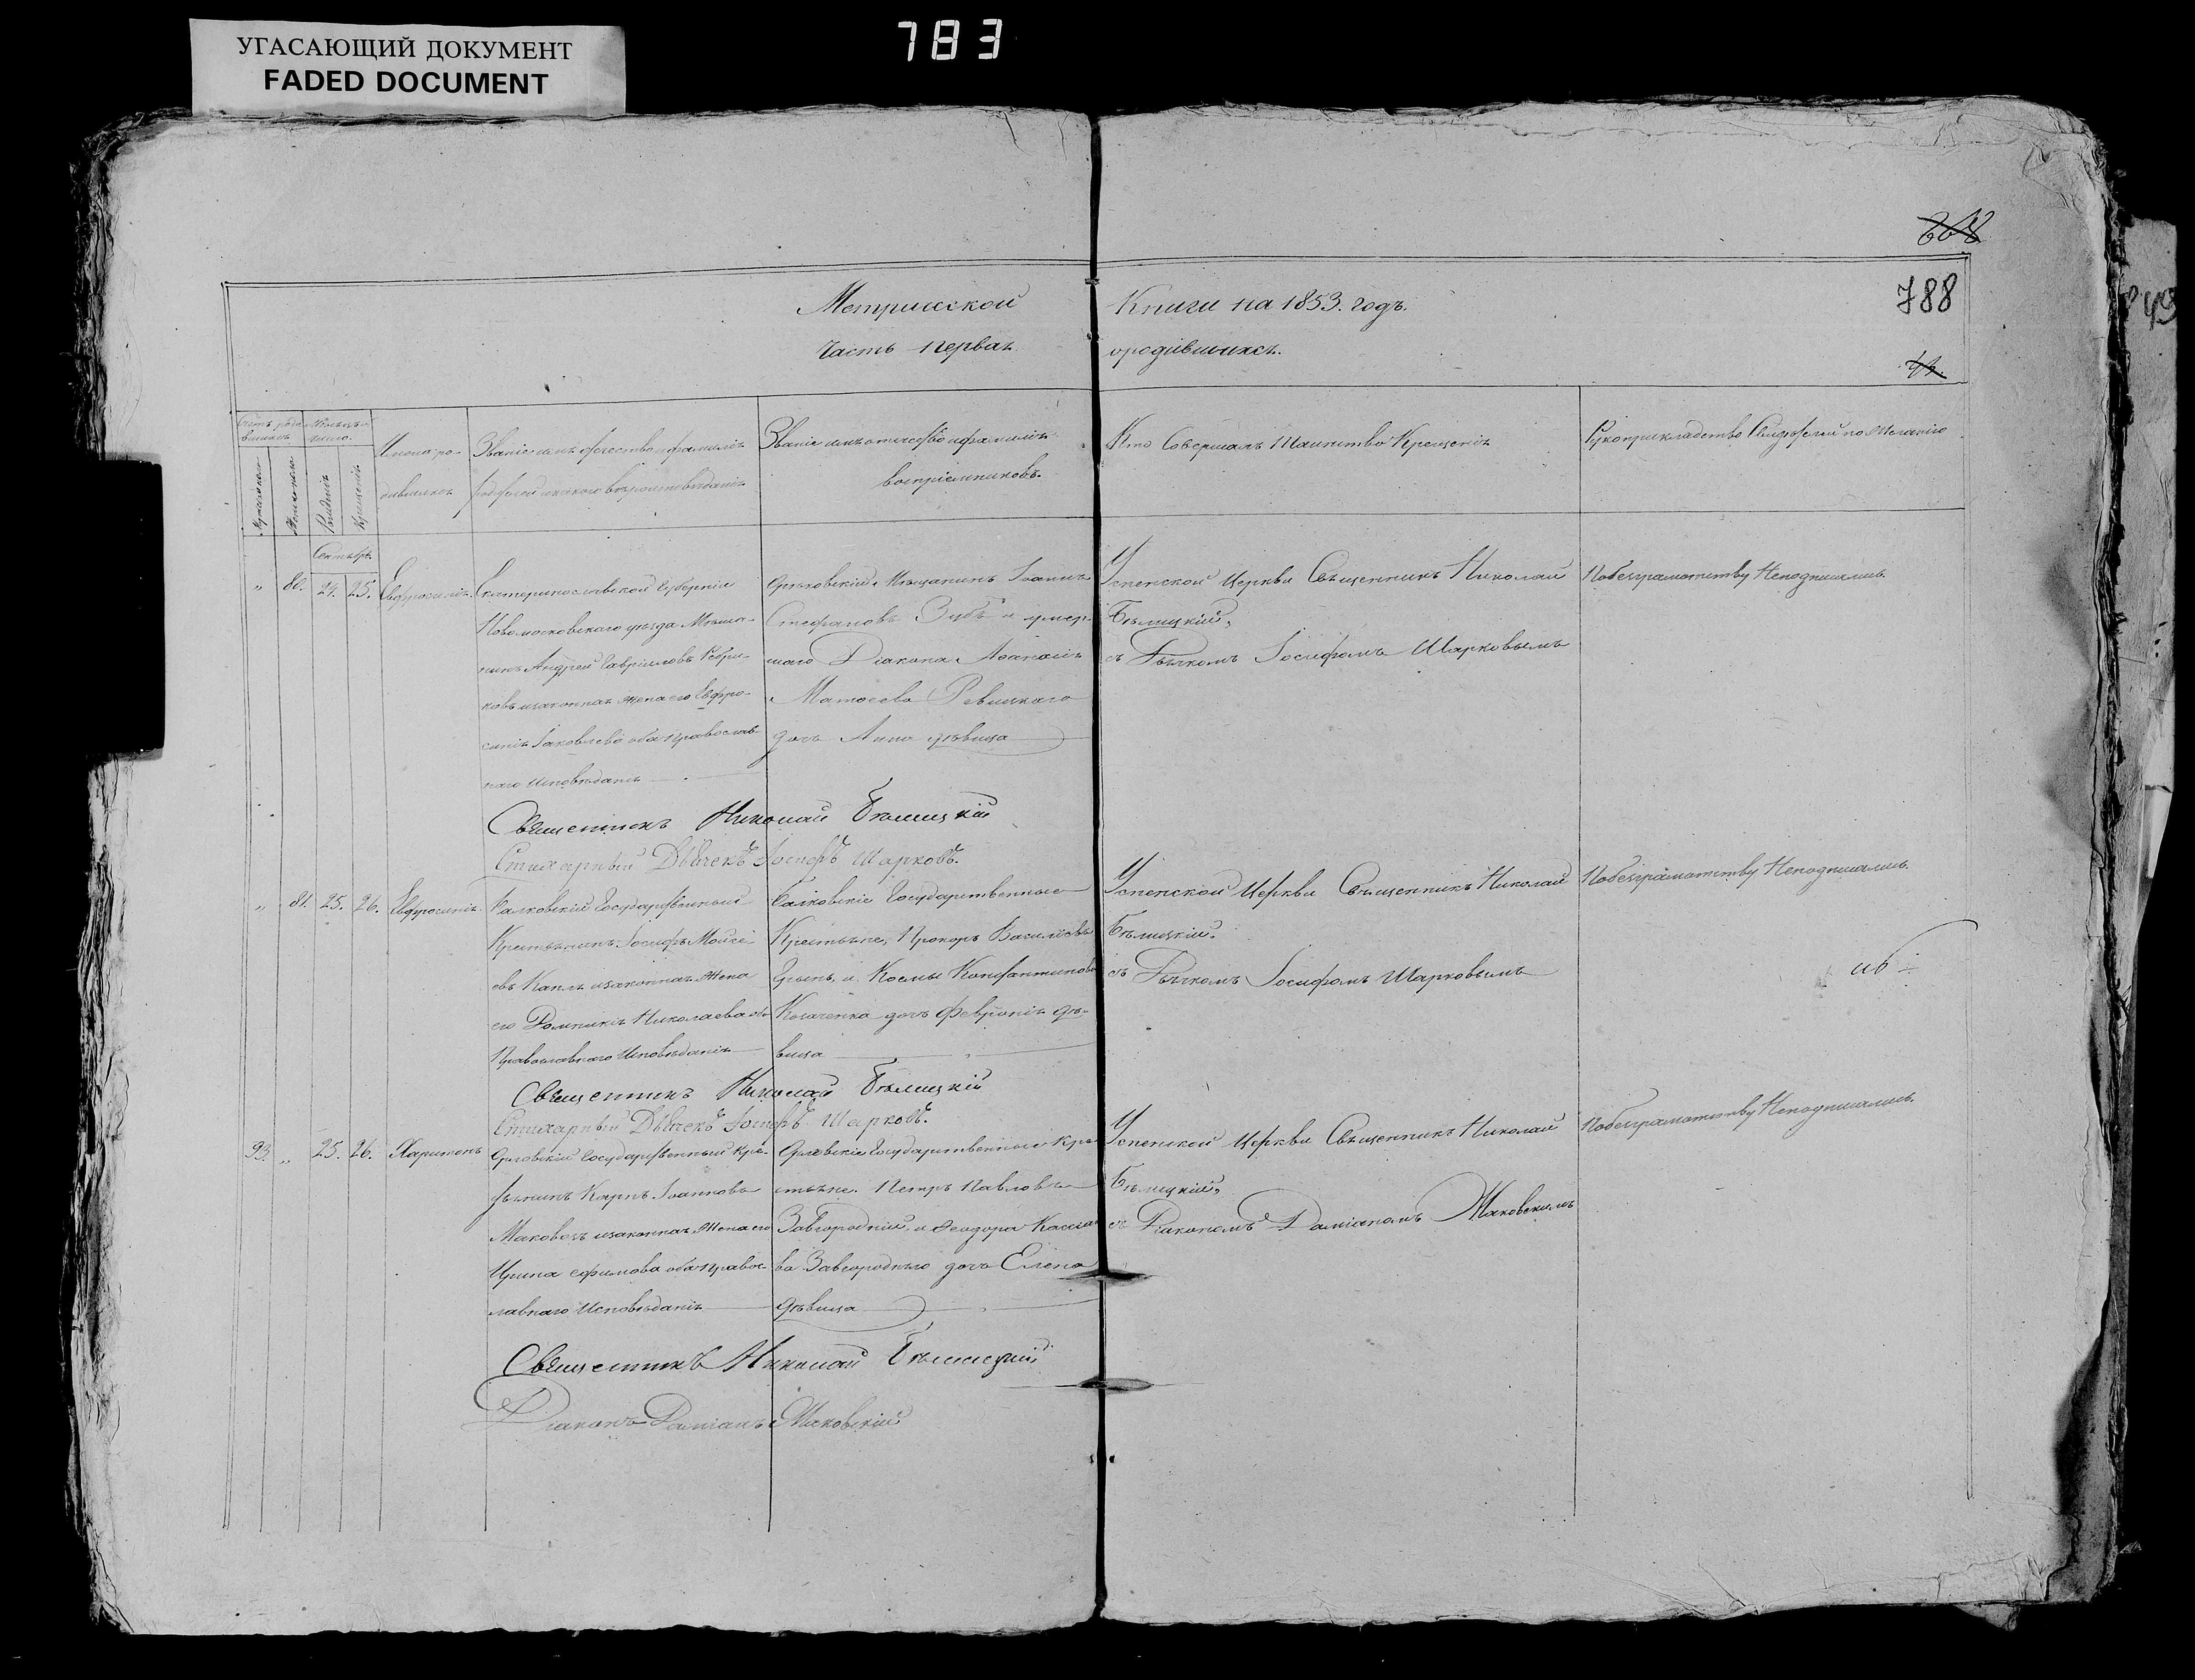 УГАСАЮЩИЙ ДОКУМЕНТ
FADED DOCUMENT
783
788
Метрической Книги на 1853. годъ.
Часть первая. о родившихся.
Имена ро-
дившихся
Званіе имя отчество и фамилія
родителей и какого вѣроисповѣданія
Званіе имя отчество и фамилія
воспріемниковъ.
Кто Совершалъ Таинство Крещенія
Рукоприкладство Свидѣтелей по Желанію
Мужеска
Женска
Рожденія
Крещенія
Сентябрь
" 80. 24. 25. Евфросинія.
Екатеринославской Губерніи
Новомосковского уѣзда Мѣща-
нинъ Андрей Гавріиловъ
и законная жена его Евфро-
синія Іаковлева оба православ
наго исповѣданія
Мѣщанинъ Іоаннъ
Стефановъ Зубъ и умер-
шаго Діакона Аѳанасія
Матѳеева Ревицкаго
дочь Анна дѣвица
Успенской Церкви Священникъ Николай
Бѣлицкій,
съ Дьячкомъ Іосифомъ Шарковымъ
По безграмотству Неподписались.
Священникъ Николай Бѣлицкій
Стихарный Дьячекъ Іосифъ Шарковъ.
" 81. 25. 26. Евфросинія.
Государственный
Крестьянинъ Іосифъ Моисе-
евъ и законная жена
его Домникія Николаева оба
Православнаго Исповѣданія
Государственные
Крестьяне, Прохоръ Василіевъ
и Космы Константинова
дочь Февронія дѣ-
вица
Успенской Церкви Священникъ Николай
Бѣлицкій.
съ Дьячкомъ Іосифомъ Шарковымъ
По безграмотству Неподписались.
Священникъ Николай Бѣлицкій
Стихарный Дьячекъ Іосифъ Шарковъ.
93. " 25. 26. Харитонъ
Государственный Кре-
стьянинъ Карпъ Іоанновъ
Маковецъ и законная жена его
Ирина Ефимова оба правос-
лавнаго Исповѣданія
Государственные Кре-
стьяне. Петръ Павловъ
Завгородній, и Ѳеодора
Завгородняго дочь Елена
дѣвица
Успенской Церкви Священникъ Николай
Бѣлицкій,
съ Діакономъ Даміаномъ Маковскимъ
По безграмотству Неподписались.
Священникъ Николай Бѣлицкій
Діаконъ Даміанъ Маковскій